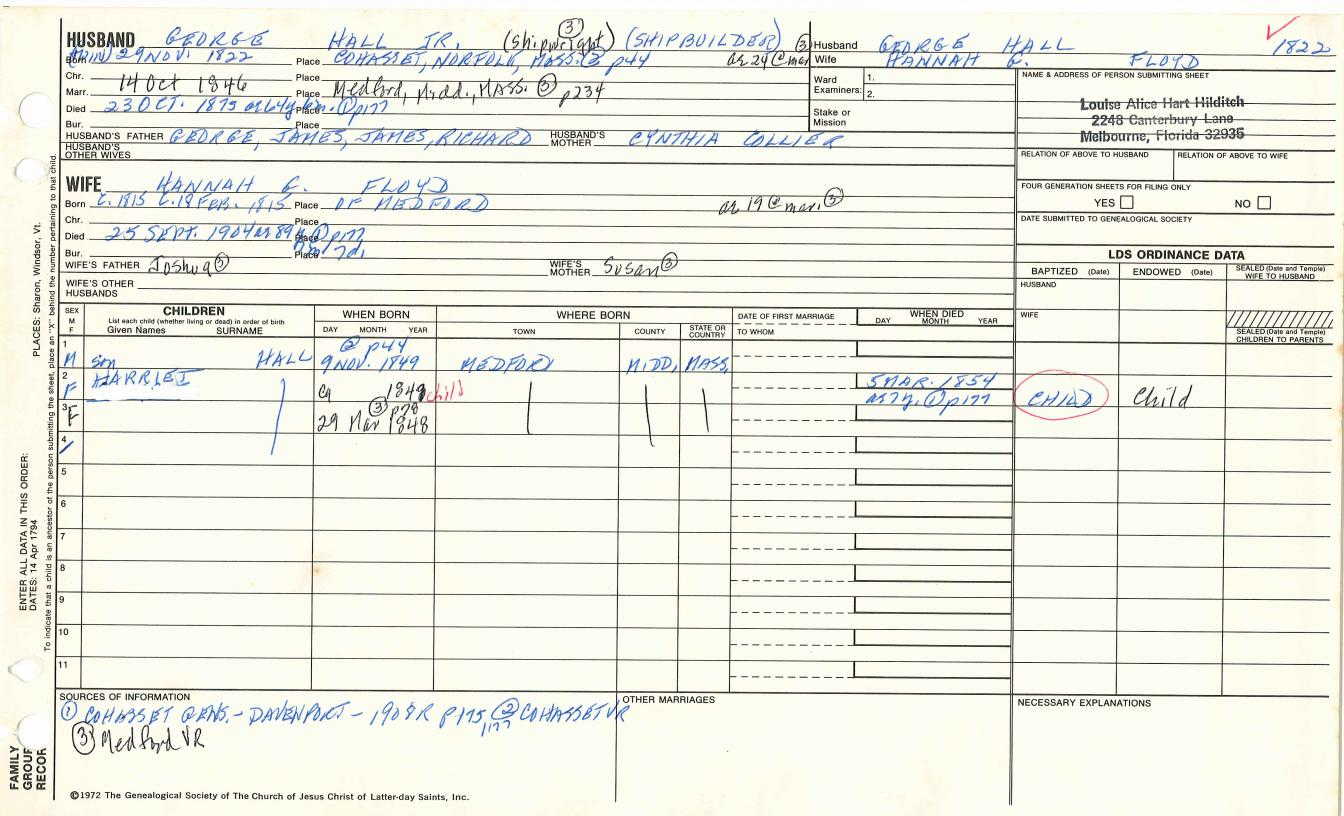 HUSBAND GEORGE HALL JR. (shipwright) ③ (SHIPBUILDER) ③
Born 29 NOV. 1822 Place COHASSET, NORFOLK, MASS. ② p44 ae 24 @ mar
Chr. Place
Marr. 14 Oct 1846 Place Medford, Midd., Mass. ③ p234
Died 23 OCT. 1875 Place ① p177
Bur. Place
HUSBAND'S FATHER GEORGE, JAMES, JAMES, RICHARD HUSBAND'S MOTHER CYNTHIA COLLIER
HUSBAND'S OTHER WIVES
Husband GEORGE HALL 1822
Wife HANNAH G. FLOYD
Ward Examiners: 1.
2.
Stake or Mission
NAME & ADDRESS OF PERSON SUBMITTING SHEET
Louise Alice Hart Hilditch
2248 Canterbury Lane
Melbourne, Florida 32935
RELATION OF ABOVE TO HUSBAND RELATION OF ABOVE TO WIFE
FOUR GENERATION SHEETS FOR FILING ONLY
YES NO
DATE SUBMITTED TO GENEALOGICAL SOCIETY
WIFE HANNAH G. FLOYD
Born C. 1815 C. 18 FEB. 1815 Place OF MEDFORD ae 19 @ mar. ③
Chr. Place
Died 25 SEPT. 1904 ae 89 Place ① p177
Bur. Place 7m 7d.
WIFE'S FATHER Joshua ③ WIFE'S MOTHER Susan ③
WIFE'S OTHER HUSBANDS
LDS ORDINANCE DATA
BAPTIZED (Date) ENDOWED (Date) SEALED (Date and Temple) WIFE TO HUSBAND
HUSBAND
WIFE
SEALED (Date and Temple) CHILDREN TO PARENTS
SEX M F CHILDREN WHEN BORN WHERE BORN DATE OF FIRST MARRIAGE WHEN DIED
List each child (whether living or dead) in order of birth
Given Names SURNAME DAY MONTH YEAR TOWN COUNTY STATE OR COUNTRY TO WHOM DAY MONTH YEAR
② p44
1 M son HALL 9 NOV. 1849 MEDFORD MIDD, MASS,
2 F HARRIET ca 1849 child 5 MAR. 1854 ae 7y. ① p177 CHILD Child
③ p78
3 F 29 Mar 1848
4
5
6
7
8
9
10
11
SOURCES OF INFORMATION
① COHASSET GENS. - DAVENPORT - 1909 R p175, p177 ② COHASSET VR
③ Medford VR
OTHER MARRIAGES
NECESSARY EXPLANATIONS
©1972 The Genealogical Society of The Church of Jesus Christ of Latter-day Saints, Inc.
FAMILY GROUP RECOR
ENTER ALL DATA IN THIS ORDER:
DATES: 14 Apr 1794
PLACES: Sharon, Windsor, Vt.
To indicate that a child is an ancestor of the person submitting the sheet, place an "X" behind the number pertaining to that child.